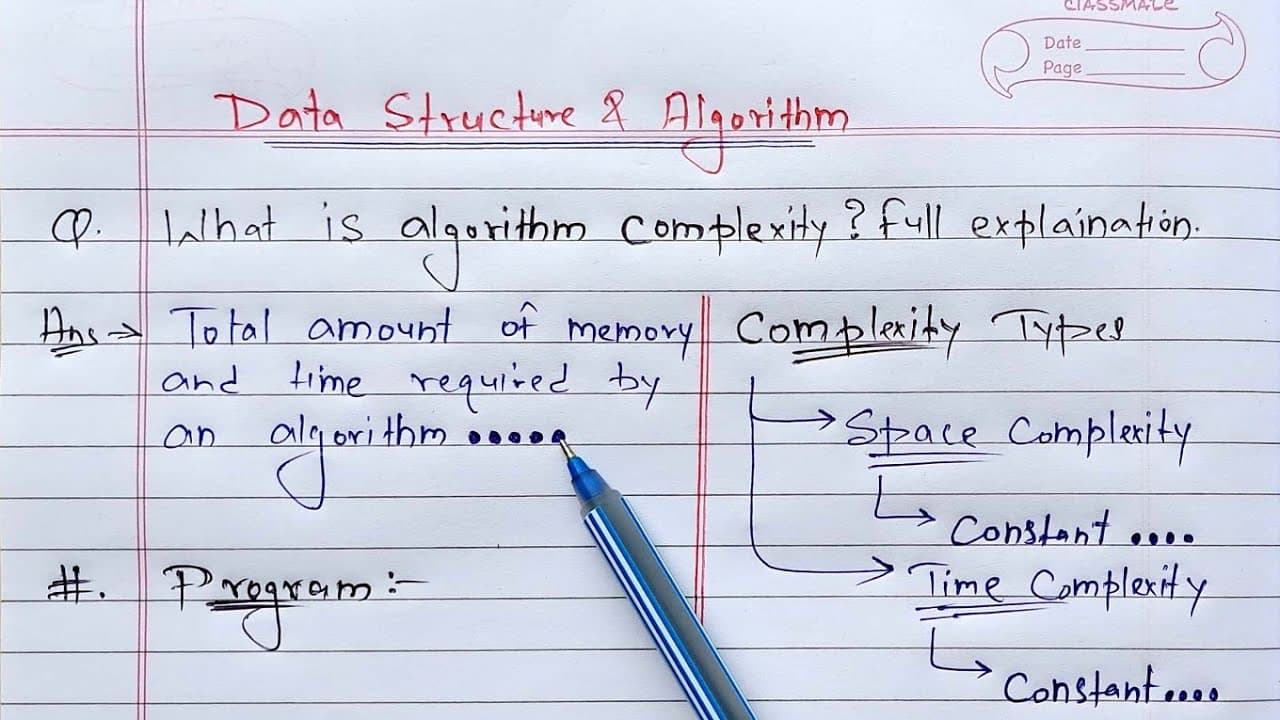 CLASSMATE
Date
Page
Data Structure & Algorithm
Q. What is algorithm complexity? Full explaination.
Ans → Total amount of memory
and time required by
an algorithm •••••
Complexity Types
Space Complexity
Constant ••••
Time Complexity
Constant ••••
#. Program :-